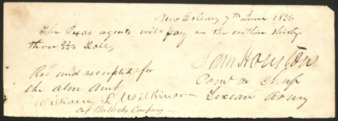 New Orleans 7th June 1836
The Texas agents will pay on the within thirty
three Dolls,
Sam Houston
Recd and receipted for
Comr in Chief
the abv Amt
Texian Army
William L. Wilkinson
Capt Bullocks Company